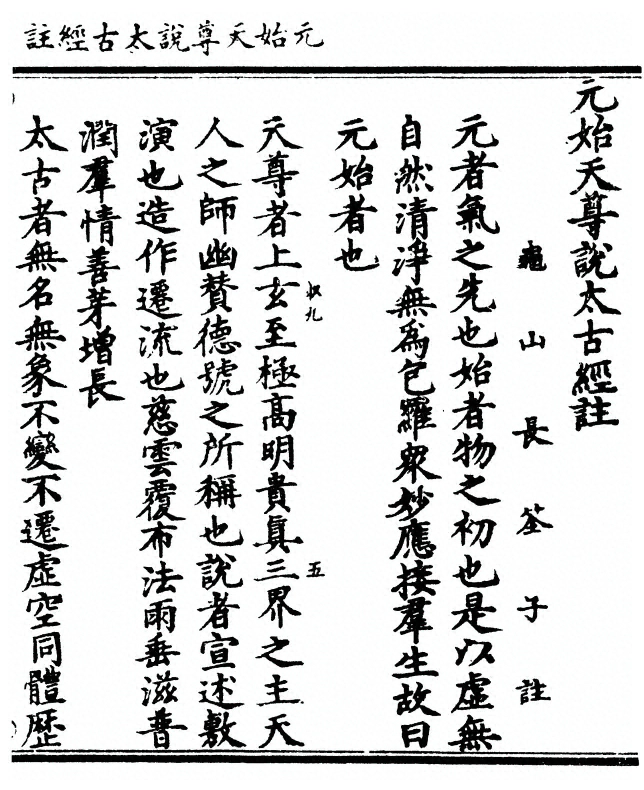 元始天尊說太古經註
元始天尊說太古經註
龜山長筌子註
元者氣之先也始者物之初也是以虛無
自然清淨無為包羅衆妙應接羣生故曰
元始者也
天尊者上玄至極高明貴眞三界之主天
叔九
五
人之師幽贊德號之所稱也說者宣述敷
演也造作遷流也慈雲覆布法雨垂滋普
潤羣情善芽增長
太古者無名無象不變不遷虛空同體歷